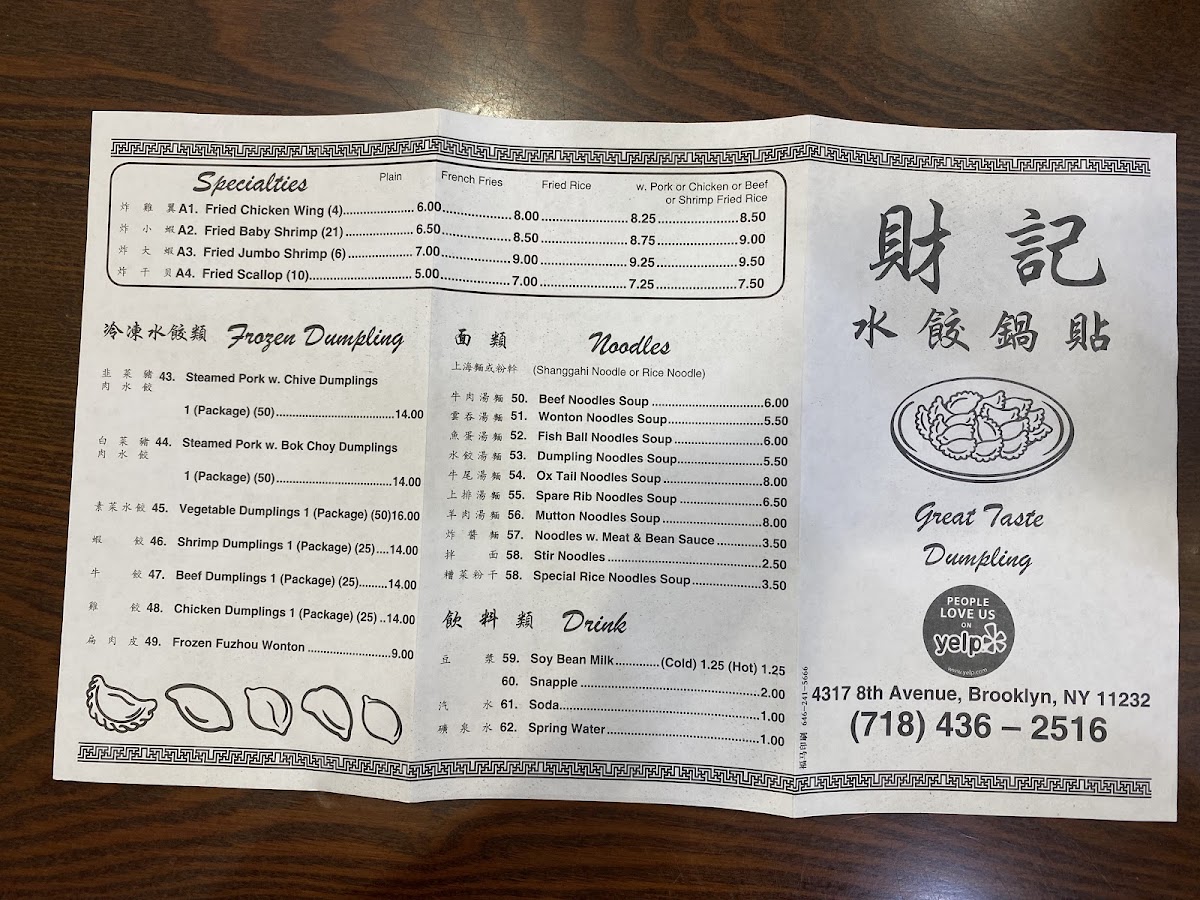 Specialties Plain French Fries Fried Rice w. Pork or Chicken or Beef
or Shrimp Fried Rice
炸雞翼 A1. Fried Chicken Wing (4)...................... 6.00......................8.00......................8.25......................8.50
炸小蝦 A2. Fried Baby Shrimp (21)...................... 6.50......................8.50......................8.75......................9.00
炸大蝦 A3. Fried Jumbo Shrimp (6)...................... 7.00......................9.00......................9.25......................9.50
炸干貝 A4. Fried Scallop (10)...................... 5.00......................7.00......................7.25......................7.50
冷凍水餃類 Frozen Dumpling
韭菜豬
肉水餃 43. Steamed Pork w. Chive Dumplings
1 (Package) (50)......................14.00
白菜豬
肉水餃 44. Steamed Pork w. Bok Choy Dumplings
1 (Package) (50)......................14.00
素菜水餃 45. Vegetable Dumplings 1 (Package) (50)16.00
蝦餃 46. Shrimp Dumplings 1 (Package) (25)....14.00
牛餃 47. Beef Dumplings 1 (Package) (25)........14.00
雞餃 48. Chicken Dumplings 1 (Package) (25) ..14.00
扁肉皮 49. Frozen Fuzhou Wonton ......................9.00
面類 Noodles
上海麵或粉幹 (Shanggahi Noodle or Rice Noodle)
牛肉湯麵 50. Beef Noodles Soup ......................6.00
雲吞湯麵 51. Wonton Noodles Soup......................5.50
魚蛋湯麵 52. Fish Ball Noodles Soup ......................6.00
水餃湯麵 53. Dumpling Noodles Soup......................5.50
牛尾湯麵 54. Ox Tail Noodles Soup ......................8.00
上排湯麵 55. Spare Rib Noodles Soup ......................6.50
羊肉湯麵 56. Mutton Noodles Soup ......................8.00
炸醬麵 57. Noodles w. Meat & Bean Sauce ............3.50
拌面 58. Stir Noodles ......................2.50
糟菜粉干 58. Special Rice Noodles Soup ......................3.50
飲料類 Drink
豆漿 59. Soy Bean Milk............(Cold) 1.25 (Hot) 1.25
60. Snapple ......................2.00
汽水 61. Soda......................1.00
礦泉水 62. Spring Water......................1.00
財記
水餃鍋貼
Great Taste
Dumpling
PEOPLE
LOVE US
ON
yelp
www.yelp.com
4317 8th Avenue, Brooklyn, NY 11232
(718) 436 – 2516
646-241-5666